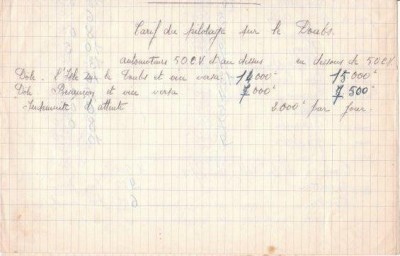 Tarif du pilotage sur le Doubs.
automoteurs 50 CV et au dessus en dessous de 50 CV
Dôle - l'Isle sur le Doubs et vice versa 14 000 15 000
Dôle Besançon et vice versa 7 000 7 500
Indemnité d'attente 2.000 par jour